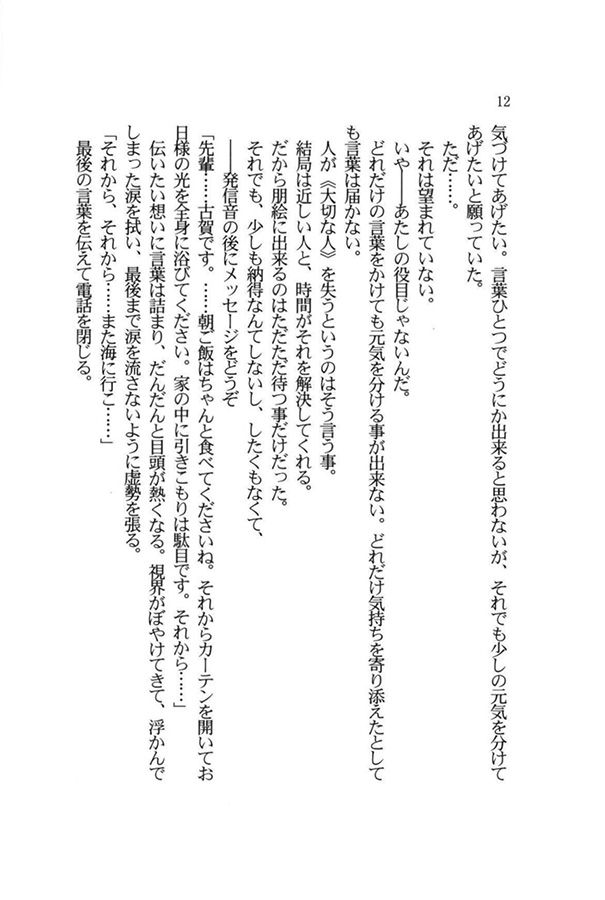 12
気づけてあげたい。言葉ひとつでどうにか出来ると思わないが、それでも少しの元気を分けて
あげたいと願っていた。
ただ……。
それは望まれていない。
いや――あたしの役目じゃないんだ。
どれだけの言葉をかけても元気を分ける事が出来ない。どれだけ気持ちを寄り添えたとして
も言葉は届かない。
人が《大切な人》を失うというのはそう言う事。
結局は近しい人と、時間がそれを解決してくれる。
だから朋絵に出来るのはただただ待つ事だけだった。
それでも、少しも納得なんてしないし、したくもなくて、
――発信音の後にメッセージをどうぞ
「先輩……古賀です。……朝ご飯はちゃんと食べてくださいね。それからカーテンを開いてお
日様の光を全身に浴びてください。家の中に引きこもりは駄目です。それから……」
伝いたい想いに言葉は詰まり、だんだんと目頭が熱くなる。視界がぼやけてきて、浮かんで
しまった涙を拭い、最後まで涙を流さないように虚勢を張る。
「それから、それから……また海に行こ……」
最後の言葉を伝えて電話を閉じる。